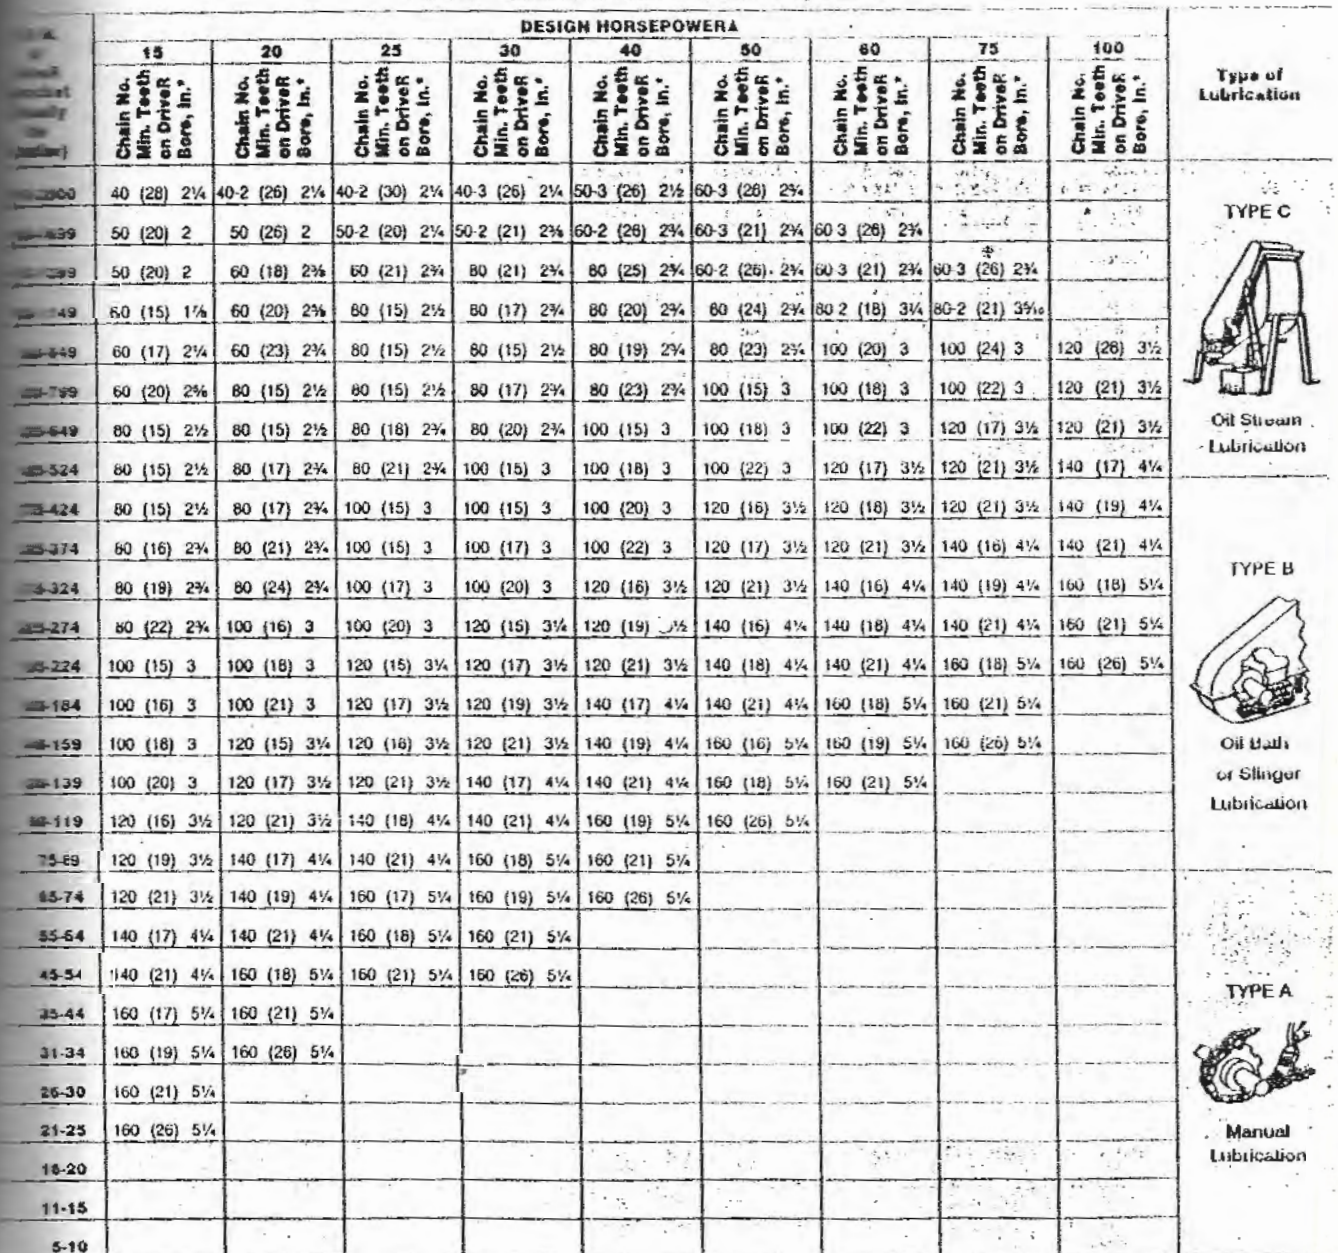 DESIGN HORSEPOWER▲
15 20 25 30 40 50 60 75 100
Chain No. Min. Teeth on DriveR Bore, In.* Chain No. Min. Teeth on DriveR Bore, In.* Chain No. Min. Teeth on DriveR Bore, In.* Chain No. Min. Teeth on DriveR Bore, In.* Chain No. Min. Teeth on DriveR Bore, In.* Chain No. Min. Teeth on DriveR Bore, In.* Chain No. Min. Teeth on DriveR Bore, In.* Chain No. Min. Teeth on DriveR Bore, In.* Chain No. Min. Teeth on DriveR Bore, In.*
Type of
Lubrication
40 (28) 2¼ 40-2 (26) 2¼ 40-2 (30) 2¼ 40-3 (26) 2¼ 50-3 (26) 2½ 60-3 (26) 2¾
50 (20) 2 50 (26) 2 50-2 (20) 2¼ 50-2 (21) 2⅜ 60-2 (26) 2¾ 60-3 (21) 2¾ 60 3 (26) 2¾
50 (20) 2 60 (18) 2⅜ 60 (21) 2¾ 80 (21) 2¾ 80 (25) 2¾ 60-2 (26) 2¾ 60 3 (21) 2¾ 60 3 (26) 2¾
60 (15) 1⅞ 60 (20) 2⅝ 80 (15) 2½ 80 (17) 2¾ 80 (20) 2¾ 80 (24) 2¾ 80 2 (18) 3¼ 80-2 (21)
60 (17) 2¼ 60 (23) 2¾ 80 (15) 2½ 80 (15) 2½ 80 (19) 2¾ 80 (23) 2¾ 100 (20) 3 100 (24) 3 120 (26) 3½
60 (20) 2⅝ 80 (15) 2½ 80 (15) 2½ 80 (17) 2¾ 80 (23) 2¾ 100 (15) 3 100 (18) 3 100 (22) 3 120 (21) 3½
80 (15) 2½ 80 (15) 2½ 80 (18) 2¾ 80 (20) 2¾ 100 (15) 3 100 (18) 3 100 (22) 3 120 (17) 3½ 120 (21) 3½
-524 80 (15) 2½ 80 (17) 2¾ 80 (21) 2¾ 100 (15) 3 100 (18) 3 100 (22) 3 120 (17) 3½ 120 (21) 3½ 140 (17) 4¼
-424 80 (15) 2½ 80 (17) 2¾ 100 (15) 3 100 (15) 3 100 (20) 3 120 (16) 3½ 120 (18) 3½ 120 (21) 3½ 140 (19) 4¼
-374 80 (16) 2¾ 80 (21) 2¾ 100 (15) 3 100 (17) 3 100 (22) 3 120 (17) 3½ 120 (21) 3½ 140 (16) 4¼ 140 (21) 4¼
-324 80 (19) 2¾ 80 (24) 2¾ 100 (17) 3 100 (20) 3 120 (16) 3½ 120 (21) 3½ 140 (16) 4¼ 140 (19) 4¼ 160 (18) 5¼
-274 80 (22) 2¾ 100 (16) 3 100 (20) 3 120 (15) 3¼ 120 (19) 140 (16) 4¼ 140 (18) 4¼ 140 (21) 4¼ 160 (21) 5¼
-224 100 (15) 3 100 (18) 3 120 (15) 3¼ 120 (17) 3½ 120 (21) 3½ 140 (18) 4¼ 140 (21) 4¼ 160 (18) 5¼ 160 (26) 5¼
-184 100 (16) 3 100 (21) 3 120 (17) 3½ 120 (19) 3½ 140 (17) 4¼ 140 (21) 4¼ 160 (18) 5¼ 160 (21) 5¼
-159 100 (18) 3 120 (15) 3¼ 120 (18) 3½ 120 (21) 3½ 140 (19) 4¼ 160 (16) 5¼ 160 (19) 5¼ 160 (26) 5¼
-139 100 (20) 3 120 (17) 3½ 120 (21) 3½ 140 (17) 4¼ 140 (21) 4¼ 160 (18) 5¼ 160 (21) 5¼
-119 120 (16) 3½ 120 (21) 3½ 140 (18) 4¼ 140 (21) 4¼ 160 (19) 5¼ 160 (26) 5¼
75-89 120 (19) 3½ 140 (17) 4¼ 140 (21) 4¼ 160 (18) 5¼ 160 (21) 5¼
65-74 120 (21) 3½ 140 (19) 4¼ 160 (17) 5¼ 160 (19) 5¼ 160 (26) 5¼
55-64 140 (17) 4¼ 140 (21) 4¼ 160 (18) 5¼ 160 (21) 5¼
45-54 140 (21) 4¼ 160 (18) 5¼ 160 (21) 5¼ 160 (26) 5¼
35-44 160 (17) 5¼ 160 (21) 5¼
31-34 160 (19) 5¼ 160 (26) 5¼
26-30 160 (21) 5¼
21-25 160 (26) 5¼
16-20
11-15
5-10
TYPE C
Oil Stream
Lubrication
TYPE B
Oil Bath
or Slinger
Lubrication
TYPE A
Manual
Lubrication